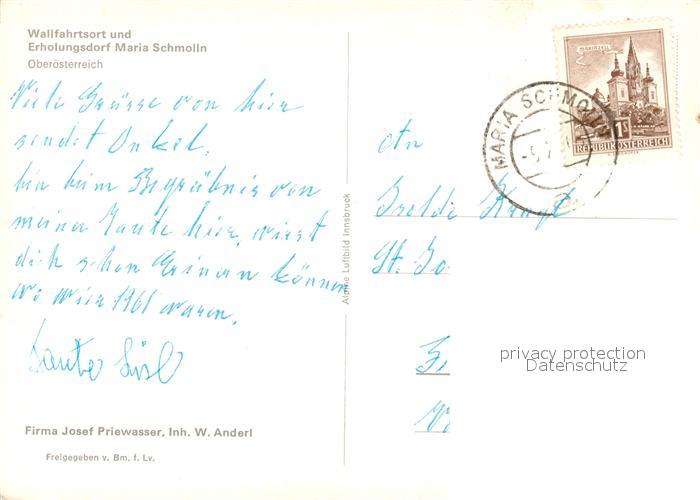 Wallfahrtsort und
Erholungsdorf Maria Schmolln
Oberösterreich
Viele Grüsse von hier
sendet Onkel,
bin beim Begräbnis von
meiner Tante hier, wirst
dich schon erinnern können
wo wir 1961 waren.
Tante
Firma Josef Priewasser, Inh. W. Anderl
Freigegeben v. Bm. f. Lv.
Alpine Luftbild Innsbruck
MARIAZELL
1S
REPUBLIK ÖSTERREICH
MARIA SCHMOLLN
An
Isolde
St.
privacy protection
Datenschutz